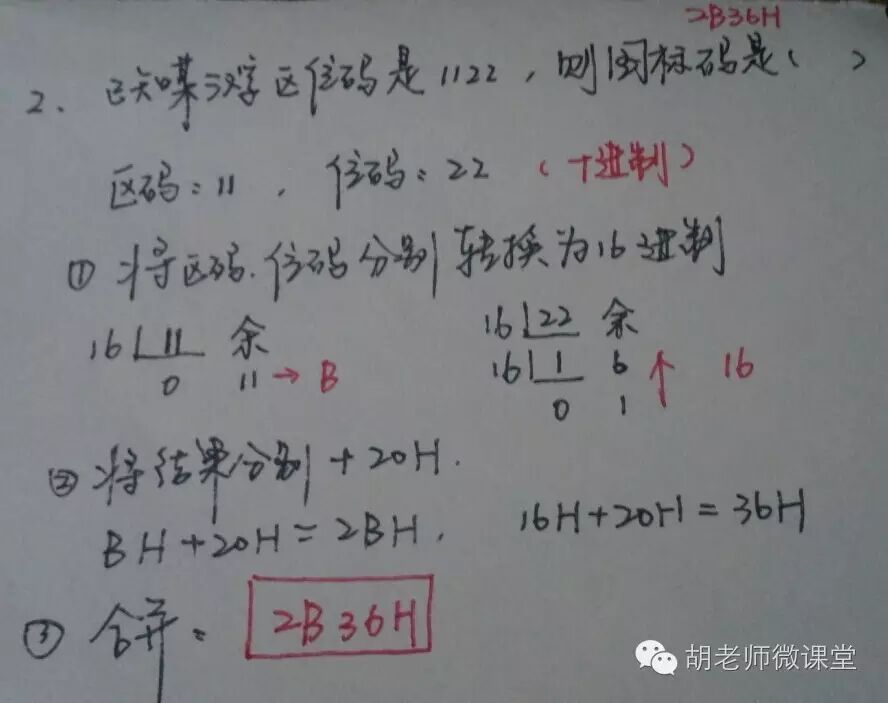 2B36H
2、已知某汉字区位码是1122，则国标码是（ ）
区码：11，位码：22 （十进制）
① 将区码、位码分别转换为16进制
16 11 余 16 22 余
0 11→B 16 1 6 ↑ 16
0 1
② 将结果分别+20H.
BH+20H=2BH, 16H+20H=36H
③ 合并： 2B36H
胡老师微课堂